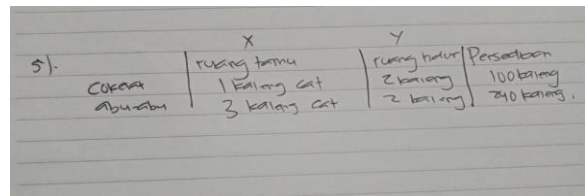 X Y
5). ruang tamu ruang tidur Persediaan
Cokelat 1 kaleng cat 2 kaleng 100 kaleng
abu-abu 3 kaleng cat 2 kaleng 240 kaleng.